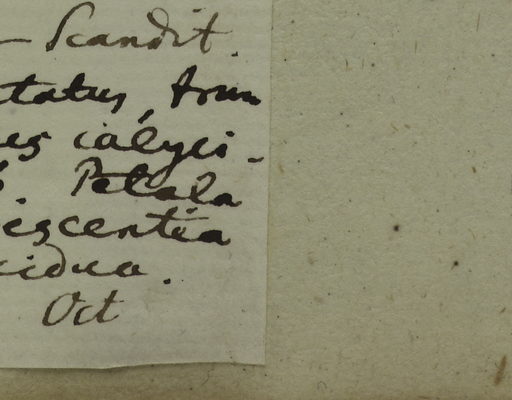 — Scandit.
tatus, trun
es calyci-
. Petala
escentia
cidua.
Oct